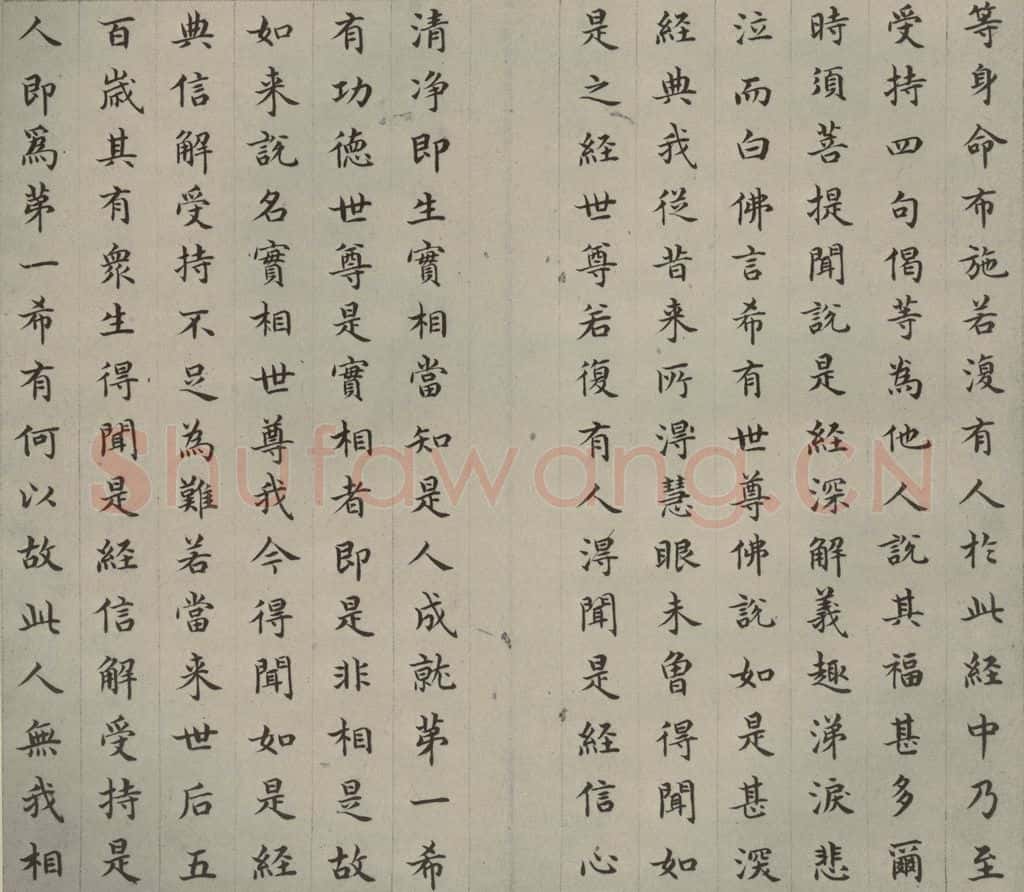 等身命布施若復有人於此経中乃至
受持四句偈等為他人說其福甚多爾
時須菩提聞說是経深解義趣涕淚悲
泣而白佛言希有世尊佛說如是甚深
経典我従昔来所得慧眼未曾得聞如
是之経世尊若復有人得聞是経信心
清净即生實相當知是人成就苐一希
有功徳世尊是實相者即是非相是故
如来說名實相世尊我今得聞如是経
典信解受持不足為難若當来世后五
百歲其有衆生得聞是経信解受持是
人即爲苐一希有何以故此人無我相
Shufawang.CN